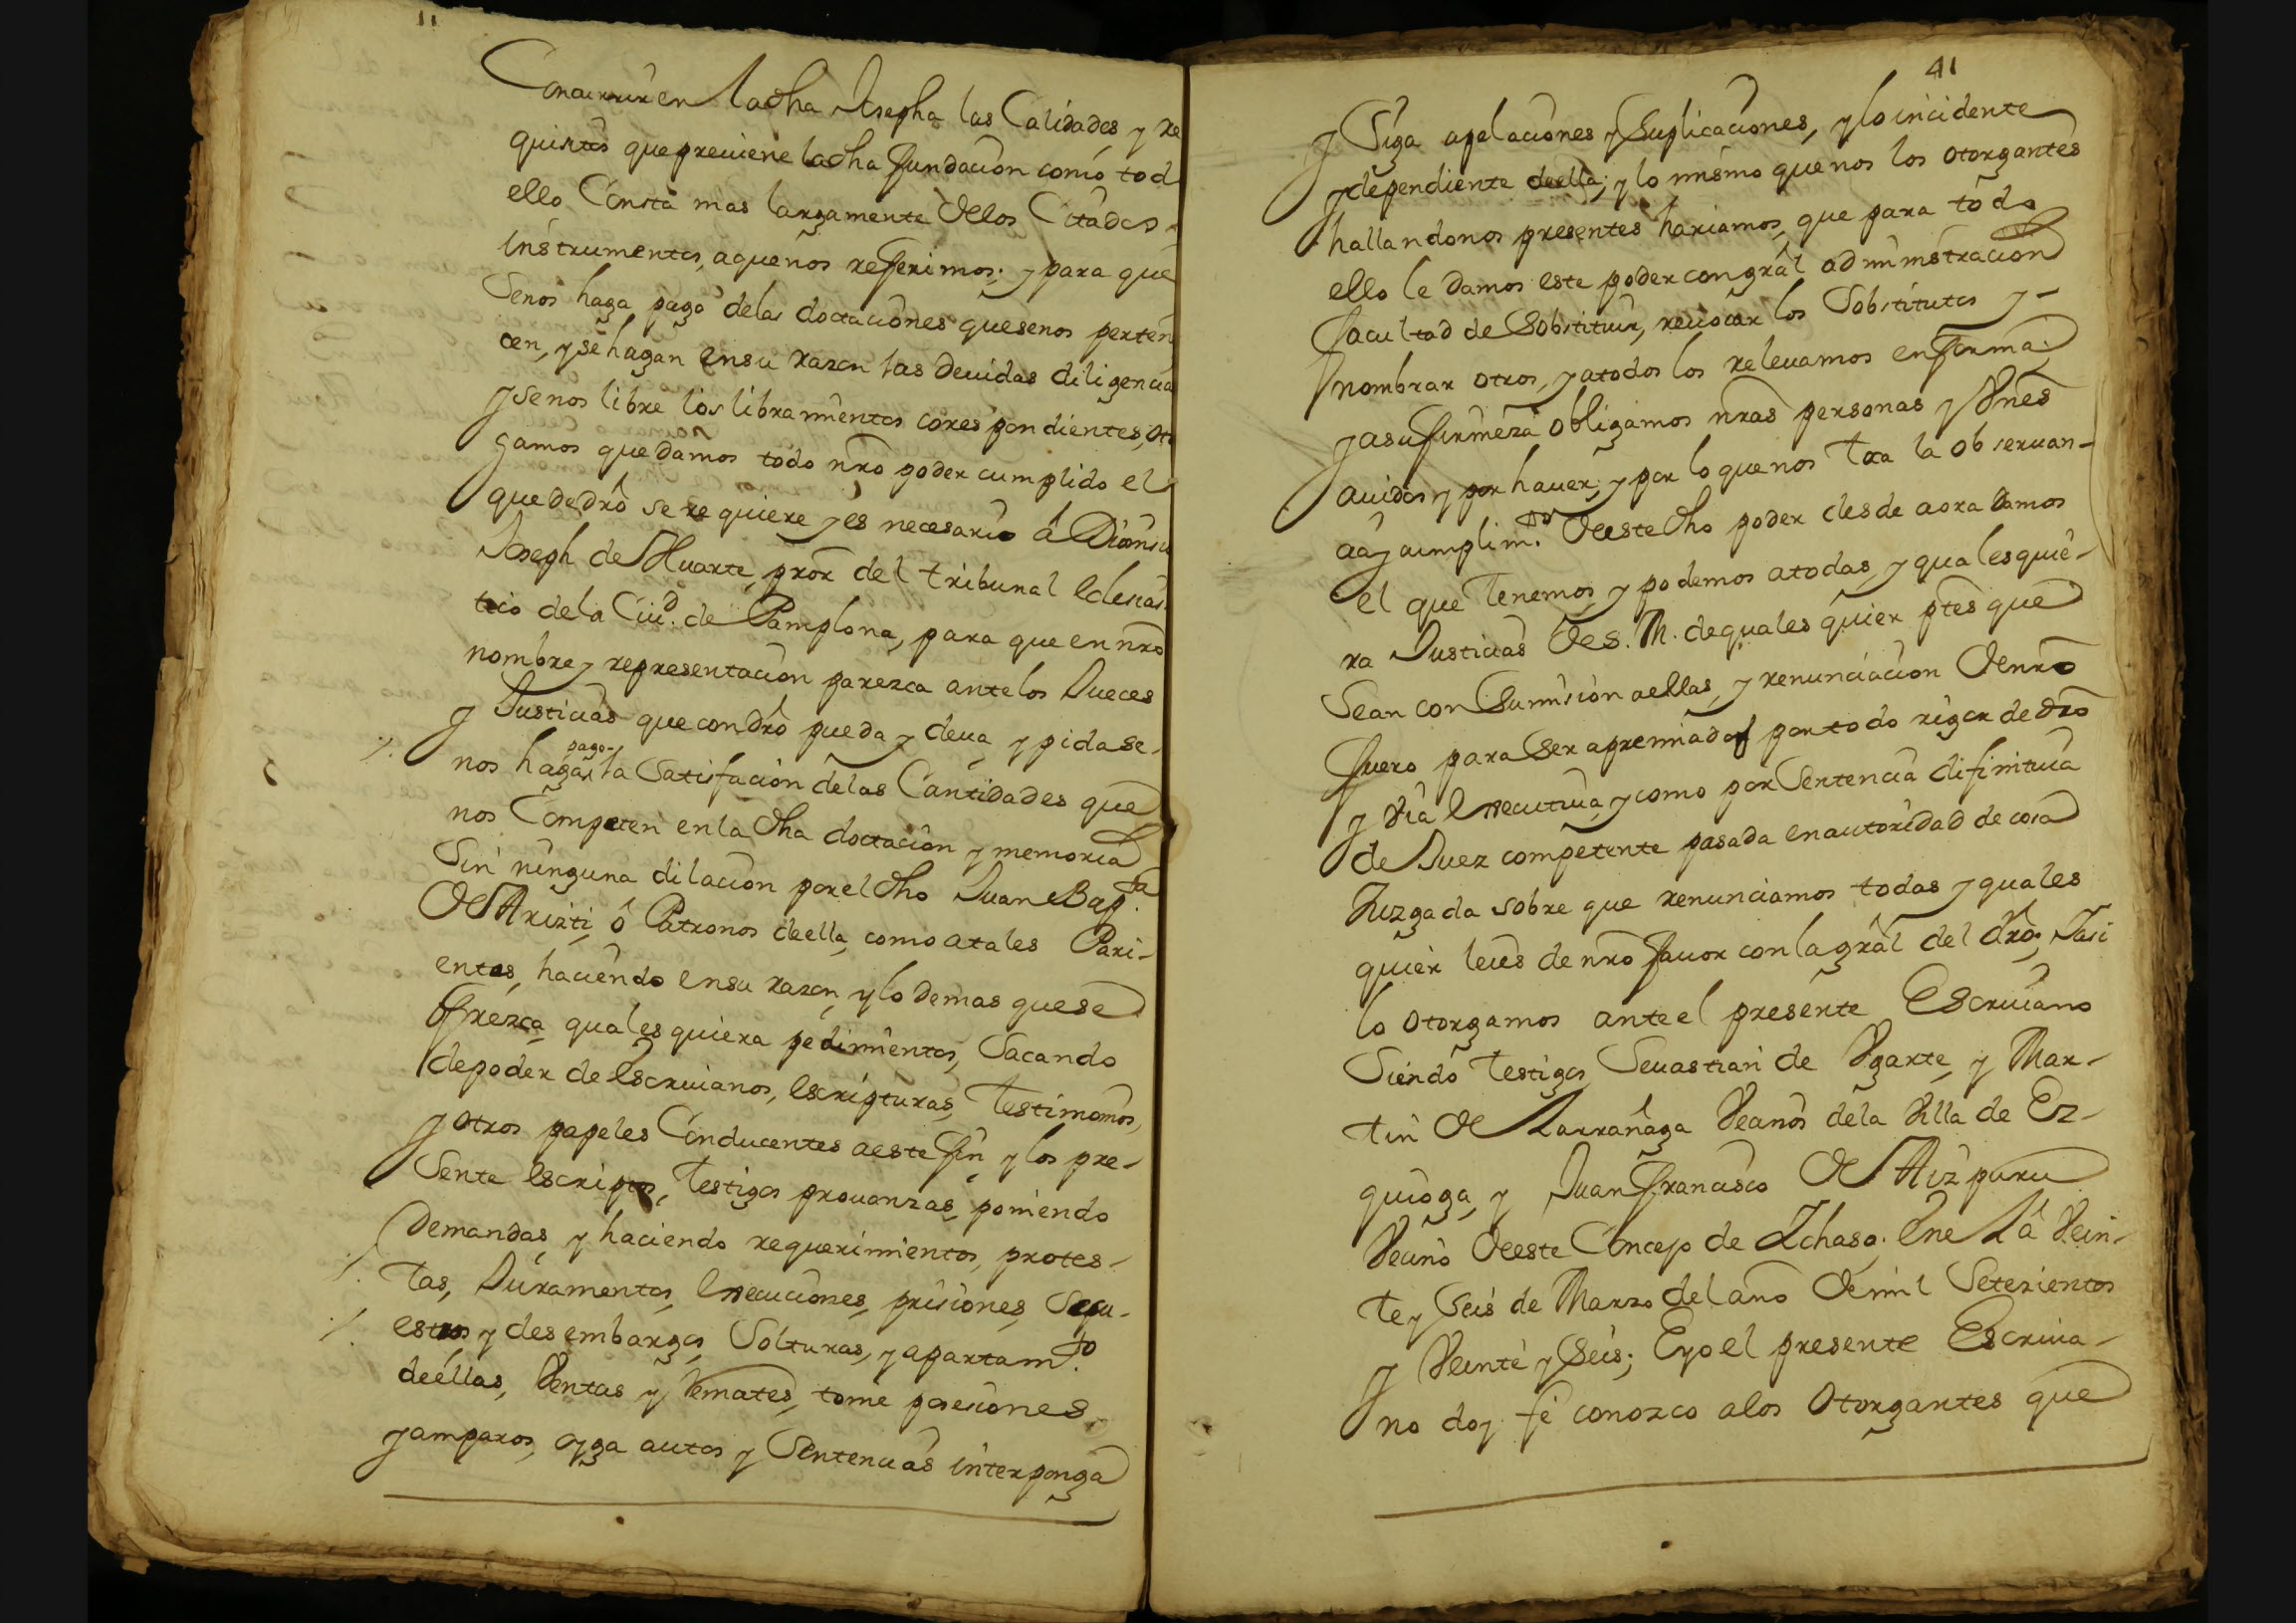 Concurrir en la dha Josepha las Calidades, y re
quisitos que preuiene la dha fundacion como tod
ello Consta mas largamente de los Citados
instrumentos, a que nos referimos; y para que
Senos haga pago de las doctaciones que se nos perten
cen, y se hagan en su razon las deuidas diligencia
y se nos libre los libramientos corespondientes, Ot
gamos que damos todo nro poder cumplido el
que de dro se requiere y es necesario â Dionisi
Joseph de Huarte, pror del tribunal Eclesias
tico de la Ciud. de Pamplona, para que en nro
nombre y representacion parezca ante los Jueces
y Justicias que con dro pueda y deua, y pida se
nos haga pago y la Satisfacion de las Cantidades que
nos Competen en la dha doctacion y memoria
Sin ninguna dilacion por el dho Juan Bapta
de Arizti, ô Patronos de ella, como a tales Pari-
entes, haciendo en su razon, y lo demas que se
ofrezca, quales quiera pedimientos, Sacando
de poder de Escriuianos, Escripturas, Testimonios,
y otros papeles Conducentes a este fin, y los pre-
Sente Escriptos, Testigos prouanzas, poniendo
Demandas, y haciendo requerimientos, protes-
tas, Juramentos, Execuciones, prisiones, Sequ-
estros y desembargos, Solturas, y apartamto
de ellas, Ventas y Remates, tome posesiones
y amparos, oyga autos y Sentencias interponga
41
y Siga apelaciones y Suplicaciones, y lo incidente
y dependiente de ella; y lo mismo que nos los otorgantes
hallandonos presentes hariamos, que para todo
ello le damos este poder con gral administracion
facultad de Sobstituir, reuocar los Sobstitutos y-
nombrar otros, y a todos los releuamos en forma;
y a su firmeza obligamos nras personas y Vnes
auidos y por hauer; y por lo que nos toca la obseruan-
cia y cumplimto de este dho poder desde aora damos
el que Tenemos, y podemos a todas, y quales quie-
ra Justicias de S. M. de quales quier ptes que
Sean con Sumision a ellas, y renunciacion de nro
fuero para Ser apremiados por todo rigor de dro
y Via Executiua, y como por Sentencia difinitiua
de Juez competente pasada en autoridad de cosa
Juzgada sobre que renunciamos todas y quales
quier leies de nro fauor con la gral del dro; Y asi
lo otorgamos ante el presente Escriuano
Siendo Testigos Seuastian de Vgarte, y Mar-
tin de Larrañaga Vecinos de la Villa de Ez-
quioga, y Juan Francisco de Aizpuru
Vecino de este Concejo de Ichaso. En el â Vein-
te y Seis de Marzo del año de mil Setezientos
y Veinte y Seis; E yo el presente Escriua-
no doy fe conozco a los Otorgantes que